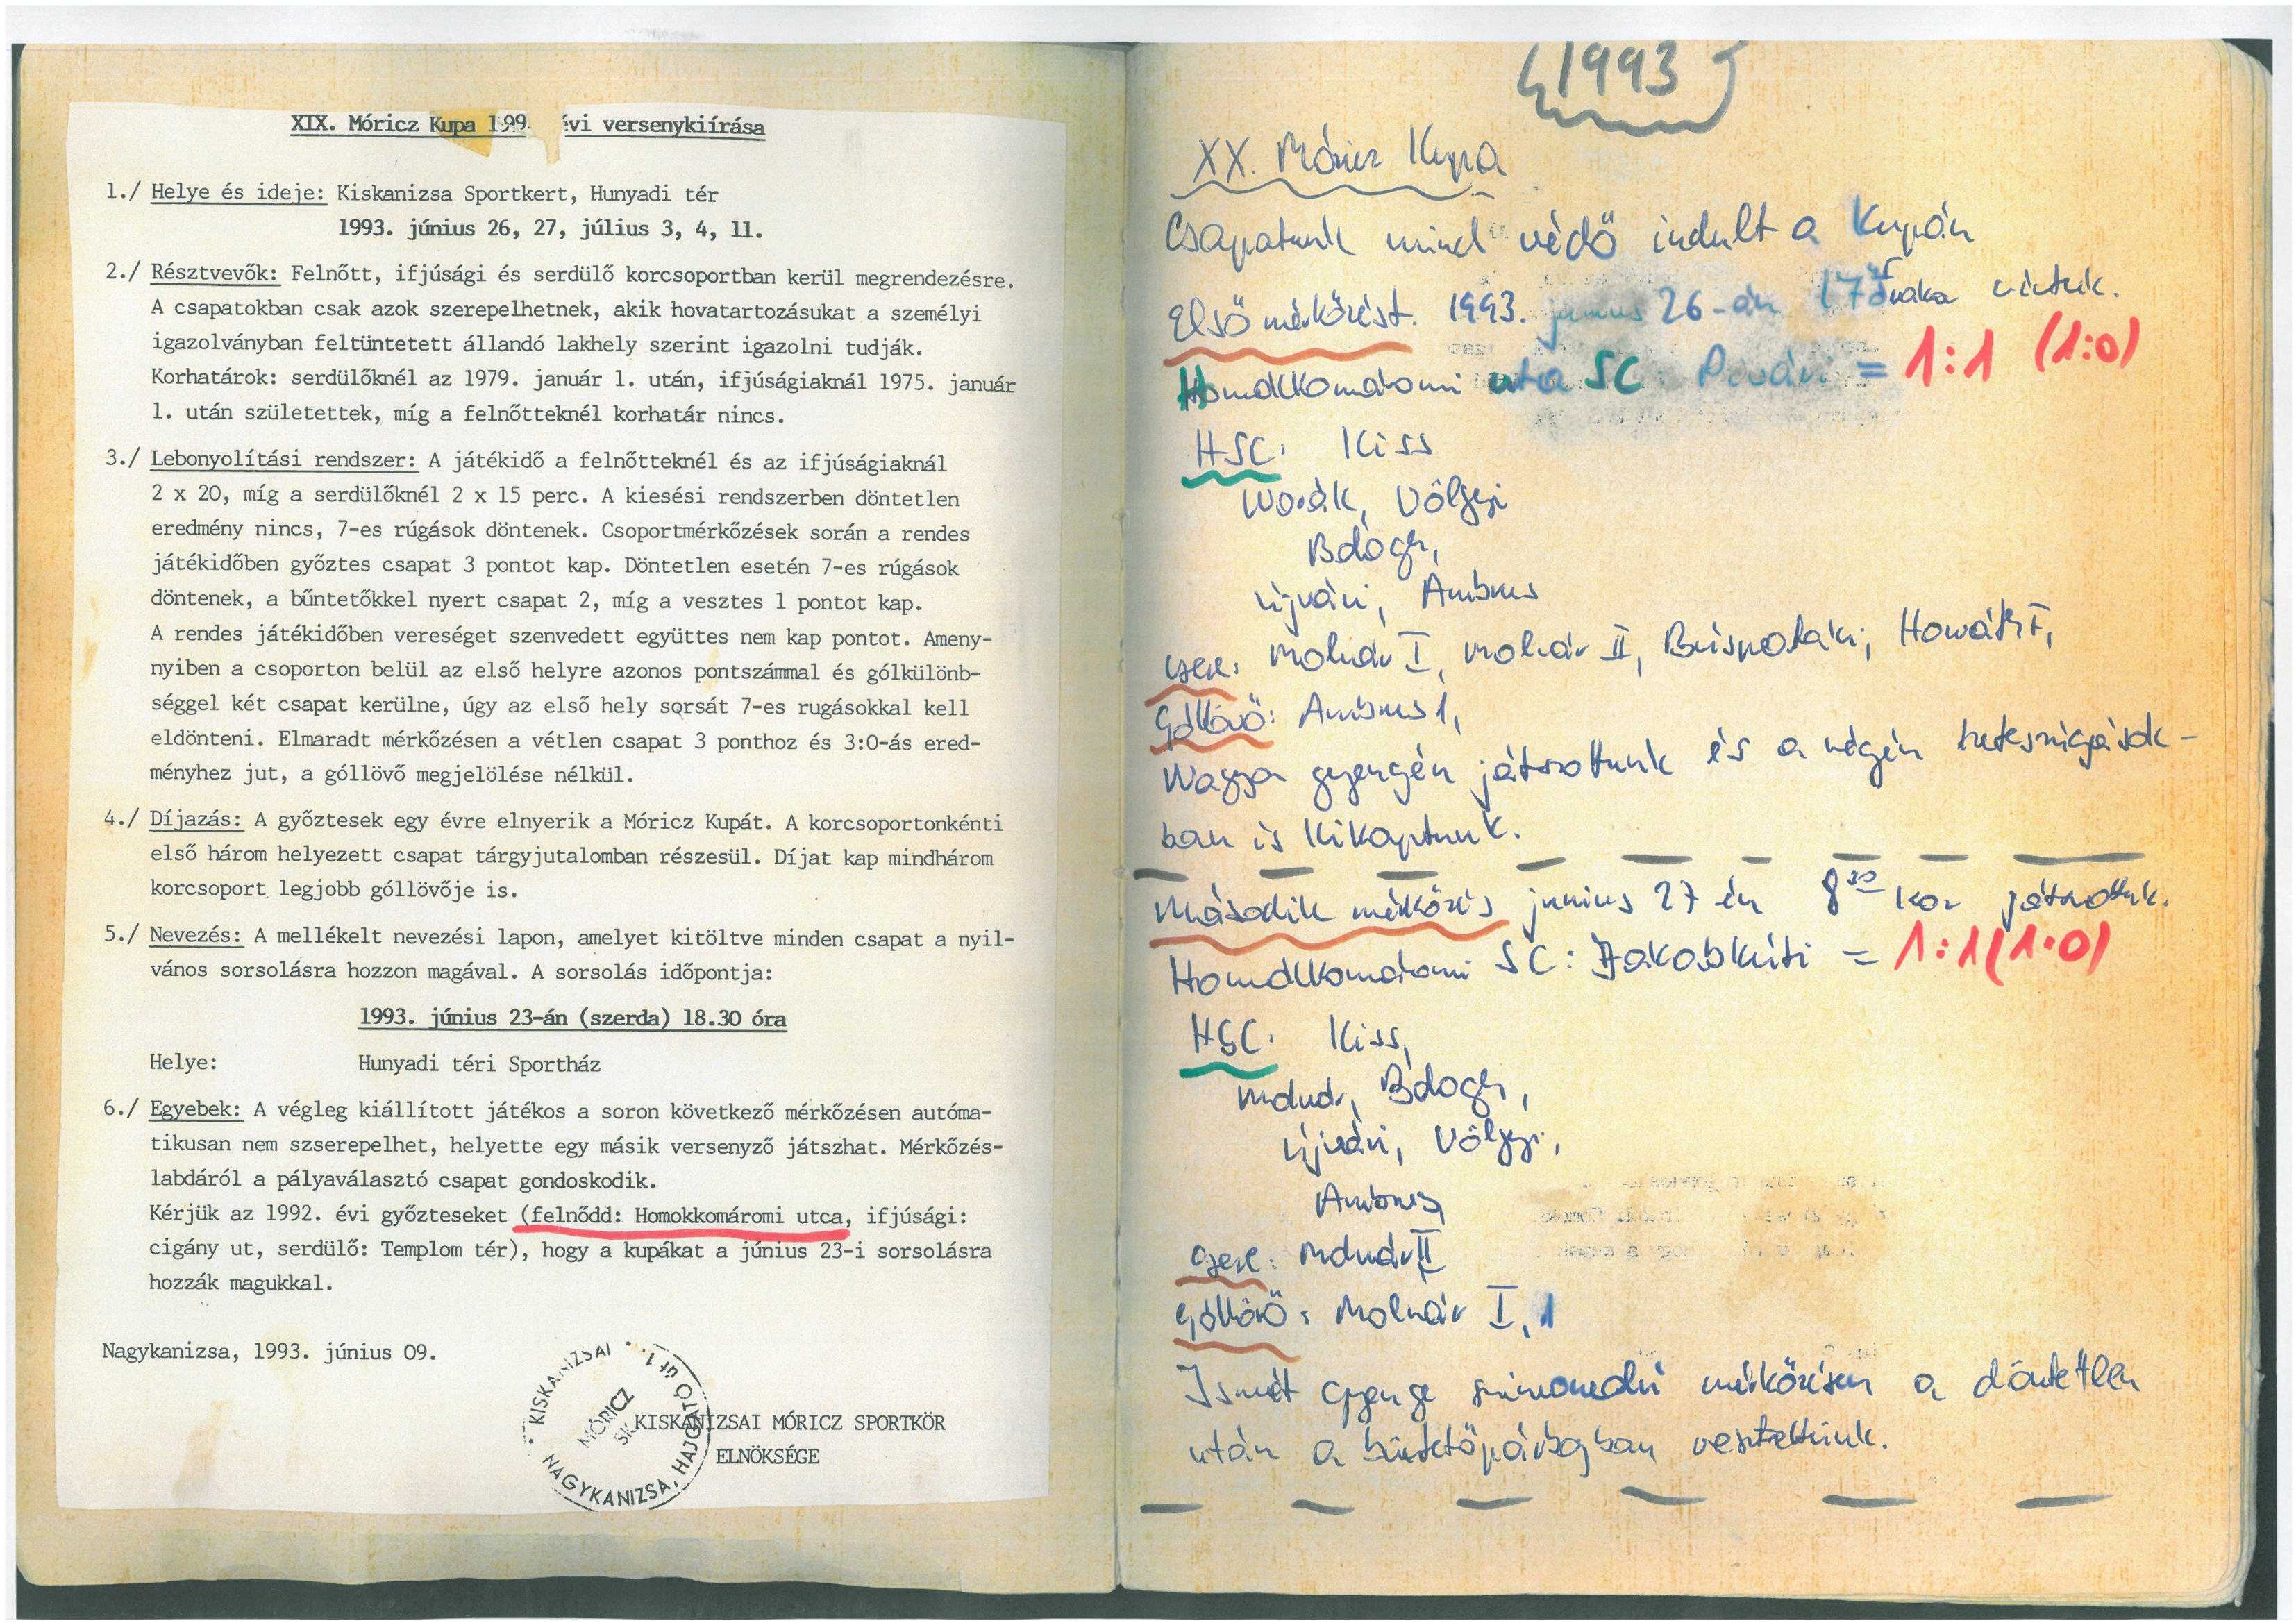 XIX. Móricz Kupa 199 évi versenykiírása
1./ Helye és ideje: Kiskanizsa Sportkert, Hunyadi tér
1993. június 26, 27, július 3, 4, 11.
2./ Résztvevők: Felnőtt, ifjúsági és serdülő korcsoportban kerül megrendezésre.
A csapatokban csak azok szerepelhetnek, akik hovatartozásukat a személyi
igazolványban feltüntetett állandó lakhely szerint igazolni tudják.
Korhatárok: serdülőknél az 1979. január 1. után, ifjúságiaknál 1975. január
1. után születettek, míg a felnőtteknél korhatár nincs.
3./ Lebonyolítási rendszer: A játékidő a felnőtteknél és az ifjúságiaknál
2 x 20, míg a serdülőknél 2 x 15 perc. A kiesési rendszerben döntetlen
eredmény nincs, 7-es rúgások döntenek. Csoportmérkőzések során a rendes
játékidőben győztes csapat 3 pontot kap. Döntetlen esetén 7-es rúgások
döntenek, a bűntetőkkel nyert csapat 2, míg a vesztes 1 pontot kap.
A rendes játékidőben vereséget szenvedett együttes nem kap pontot. Ameny-
nyiben a csoporton belül az első helyre azonos pontszámmal és gólkülönb-
séggel két csapat kerülne, úgy az első hely sorsát 7-es rugásokkal kell
eldönteni. Elmaradt mérkőzésen a vétlen csapat 3 ponthoz és 3:0-ás ered-
ményhez jut, a góllövő megjelölése nélkül.
4./ Díjazás: A győztesek egy évre elnyerik a Móricz Kupát. A korcsoportonkénti
első három helyezett csapat tárgyjutalomban részesül. Díjat kap mindhárom
korcsoport legjobb góllövője is.
5./ Nevezés: A mellékelt nevezési lapon, amelyet kitöltve minden csapat a nyil-
vános sorsolásra hozzon magával. A sorsolás időpontja:
1993. június 23-án (szerda) 18.30 óra
Helye: Hunyadi téri Sportház
6./ Egyebek: A végleg kiállított játékos a soron következő mérkőzésen autóma-
tikusan nem szserepelhet, helyette egy másik versenyző játszhat. Mérkőzés-
labdáról a pályaválasztó csapat gondoskodik.
Kérjük az 1992. évi győzteseket (felnődd: Homokkomáromi utca, ifjúsági:
cigány ut, serdülő: Templom tér), hogy a kupákat a június 23-i sorsolásra
hozzák magukkal.
Nagykanizsa, 1993. június 09.
KISKANIZSAI MÓRICZ SK. NAGYKANIZSA, HAJGATÓ ÚT 1.
KISKANIZSAI MÓRICZ SPORTKÖR
ELNÖKSÉGE
1993
XX. Móricz Kupa
Csapatunk mind védő indult a Kupán
Első mérkőzést. 1993. junius 26-án 17 órakor vivtuk.
Homokkomáromi utca SC: = 1:1 (1:0)
HSC. Kiss
Worák, Völgyi
Balogh,
Ujvári, Ambrus
csere: Molnár I, Molnár II, Horváth I,
Góllövő: Ambrus 1,
Nagyon gyengén játszottunk és a végén hetesrúgások-
ban is kikaptunk.
Második mérkőzés junius 27-én 8 kor játszottuk.
Homokkomáromi SC: Jakabkúti = 1:1 (1:0)
HSC. Kiss,
Molnár, Balogh,
Ujvári, Völgyi,
Ambrus
Csere: Molnár II
Góllövő: Molnár I, 1
Ismét gyenge szinvonalú mérkőzésen a döntetlen
után a büntetőpárbajban vesztettünk.